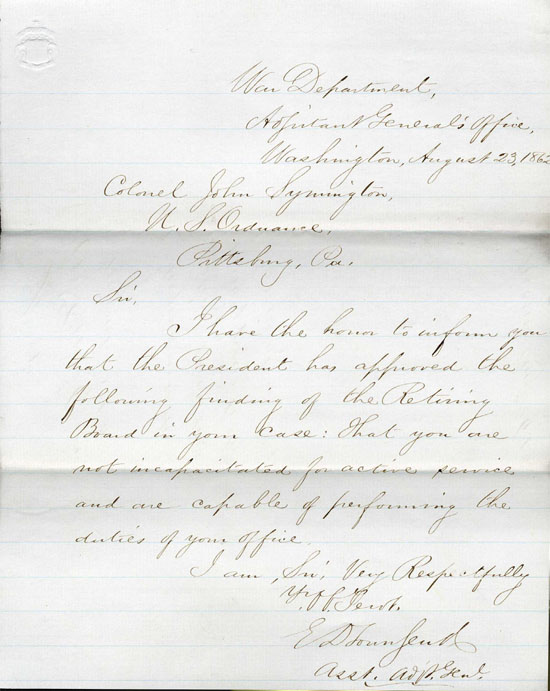 War Department,
Adjutant General's Office,
Washington, August 23, 1862
Colonel John Symington,
U. S. Ordnance,
Pittsburg, Pa.
Sir,
I have the honor to inform you
that the President has approved the
following finding of the Retiring
Board in your case: That you are
not incapacitated for active service
and are capable of performing the
duties of your office.
I am, Sir, Very Respectfully
Yr. Ob. Servt.
E D Townsend
Asst. Adjt. Genl.